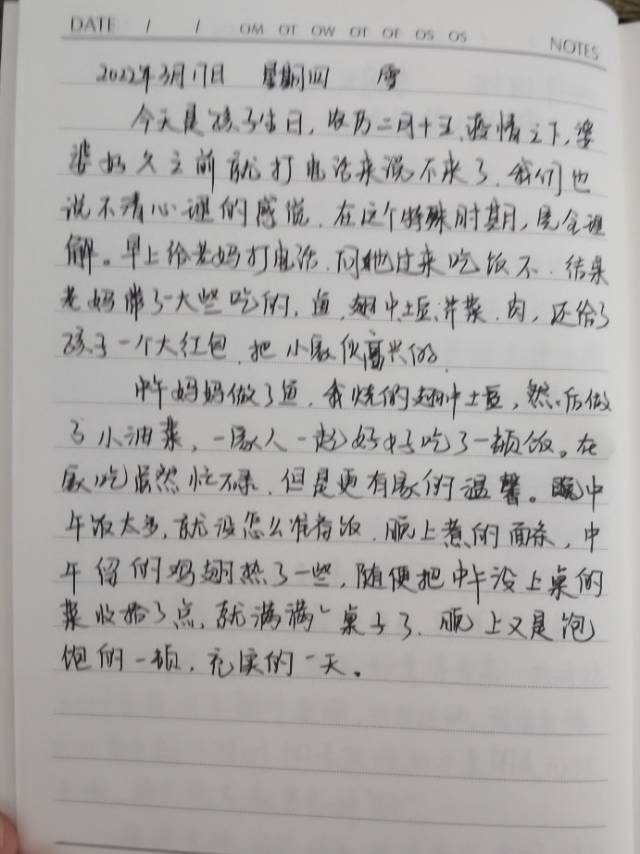 DATE / / OM OT OW OT OF OS OS NOTES
2022年3月17日 星期四 雪
今天是孩子生日,农历二月十五,疫情之下,婆
婆好久之前就打电话来说不来了,我们也
说不清心理的感觉,在这个特殊时期,完全理
解。早上给老妈打电话,问她过来吃饭不,结果
老妈带了一大些吃的,鱼,翅中,土豆,芹菜,肉,还给了
孩子一个大红包,把小家伙高兴的。
中午妈妈做了鱼,我烧的翅中土豆,然后做
了小油菜,一家人一起好好吃了一顿饭。在
家吃虽然忙碌,但是更有家的温馨。晚中
午饭太多,就没怎么准备饭,晚上煮的面条,中
午留的鸡翅热了一些,随便把中午没上桌的
菜收拾了点,就满满一桌子了,晚上又是饱
饱的一顿,充实的一天。